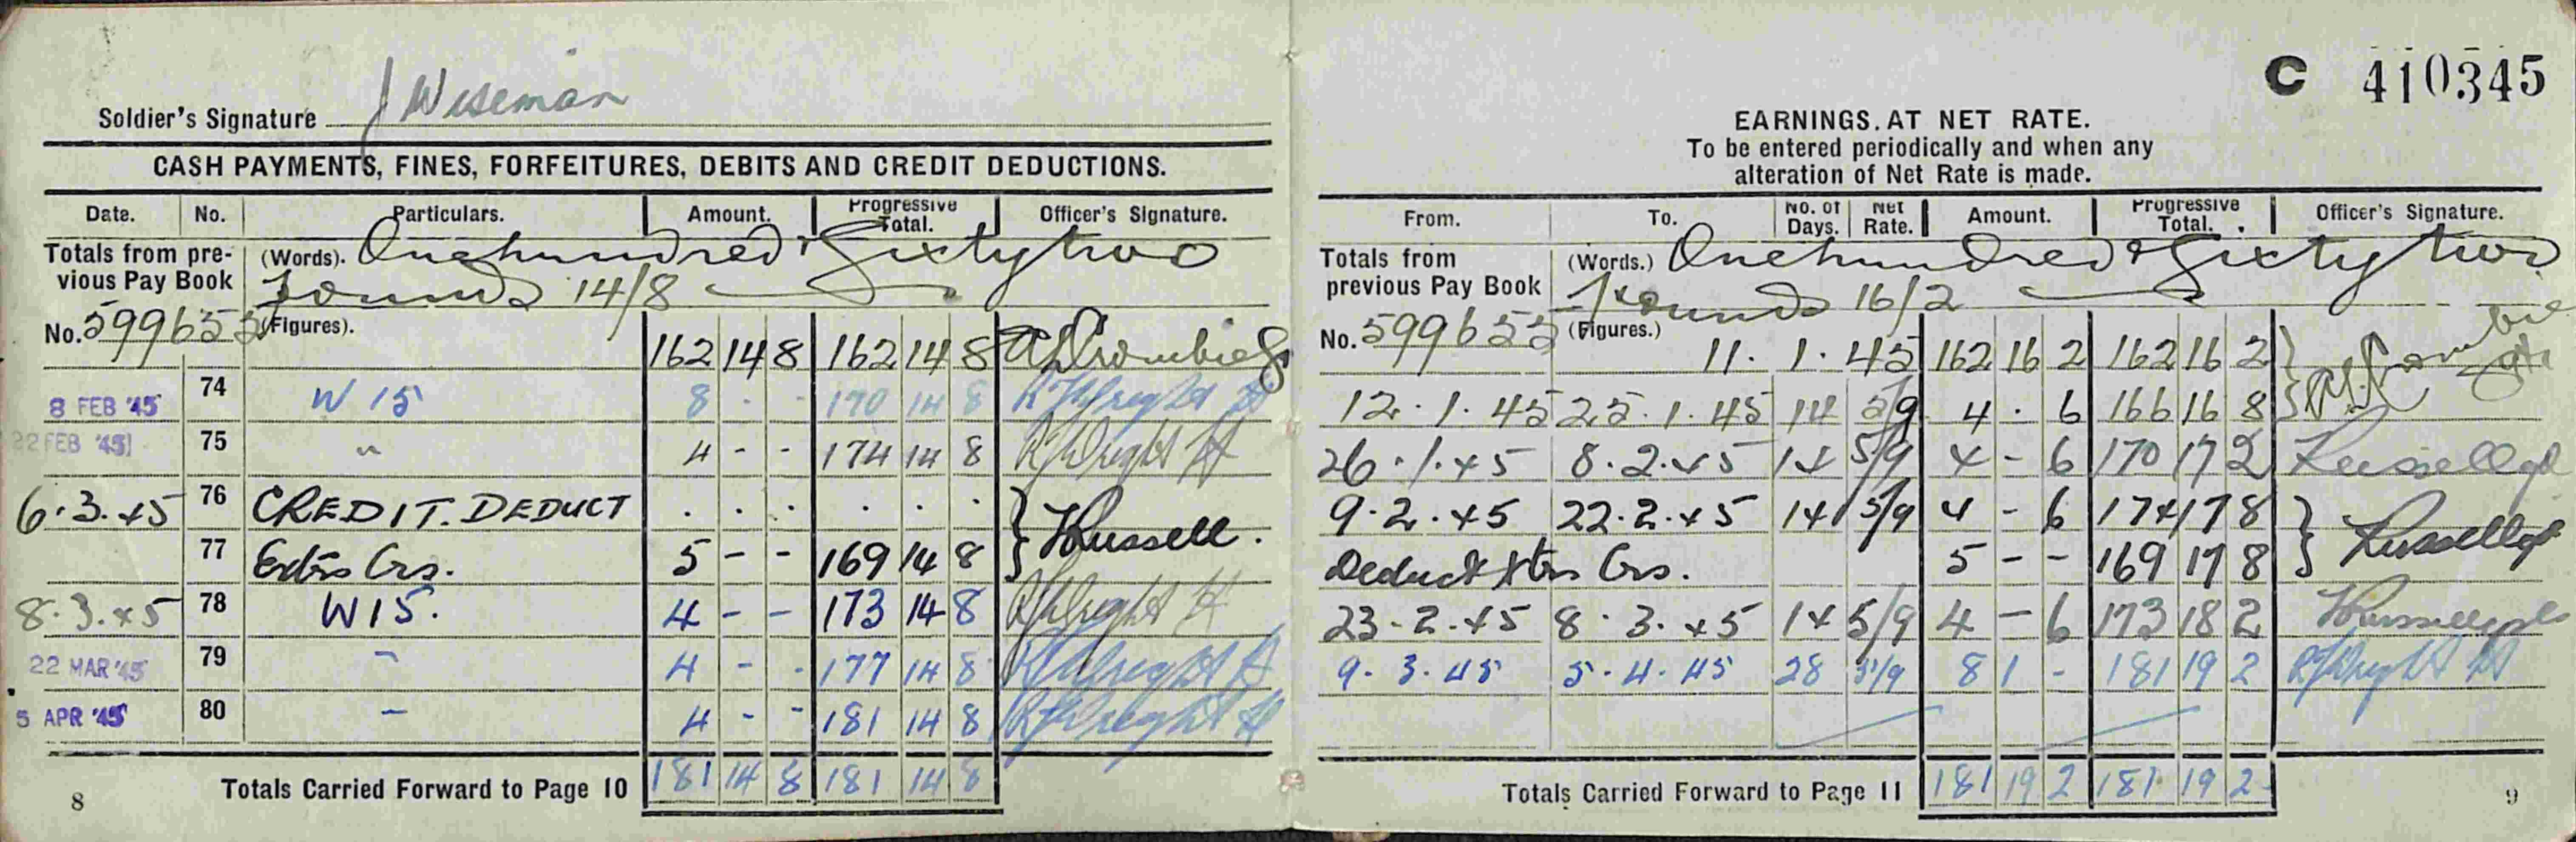 Soldier's Signature J Wiseman
CASH PAYMENTS, FINES, FORFEITURES, DEBITS AND CREDIT DEDUCTIONS.
Date. No. Particulars. Amount. Progressive Total. Officer's Signature.
Totals from previous Pay Book (Words). One hundred & Sixty two
Pounds 14/8
No. 599653 (Figures). 162 14 8 162 14 8
8 FEB '45 74 W 15 8 - - 170 14 8 Wright Lt
22 FEB '45 75 " 4 - - 174 14 8 Wright Lt
6.3.45 76 CREDIT. DEDUCT . . . . . .
77 Extra Crs. 5 - - 169 14 8 Russell.
8.3.45 78 W 15. 4 - - 173 14 8 Wright Lt
22 MAR '45 79 - 4 - - 177 14 8 Wright Lt
5 APR '45 80 - 4 - - 181 14 8 Wright Lt
Totals Carried Forward to Page 10 181 14 8 181 14 8
8
C 410345
EARNINGS. AT NET RATE.
To be entered periodically and when any
alteration of Net Rate is made.
From. To. No. of Days. Net Rate. Amount. Progressive Total. Officer's Signature.
Totals from previous Pay Book (Words.) One hundred & Sixty two
Pounds 16/2
No. 599653 (Figures.) 11.1.45 162 16 2 162 16 2
12.1.45 25.1.45 14 5/9 4 . 6 166 16 8
26.1.45 8.2.45 14 5/9 4 - 6 170 17 2 Russell
9.2.45 22.2.45 14 5/9 4 - 6 174 17 8
Deduct Xtra Crs. 5 - - 169 17 8 Russell
23.2.45 8.3.45 14 5/9 4 - 6 173 18 2 Russell
9.3.45 5.4.45 28 5/9 8 1 - 181 19 2 Wright Lt
Totals Carried Forward to Page 11 181 19 2 181 19 2
9